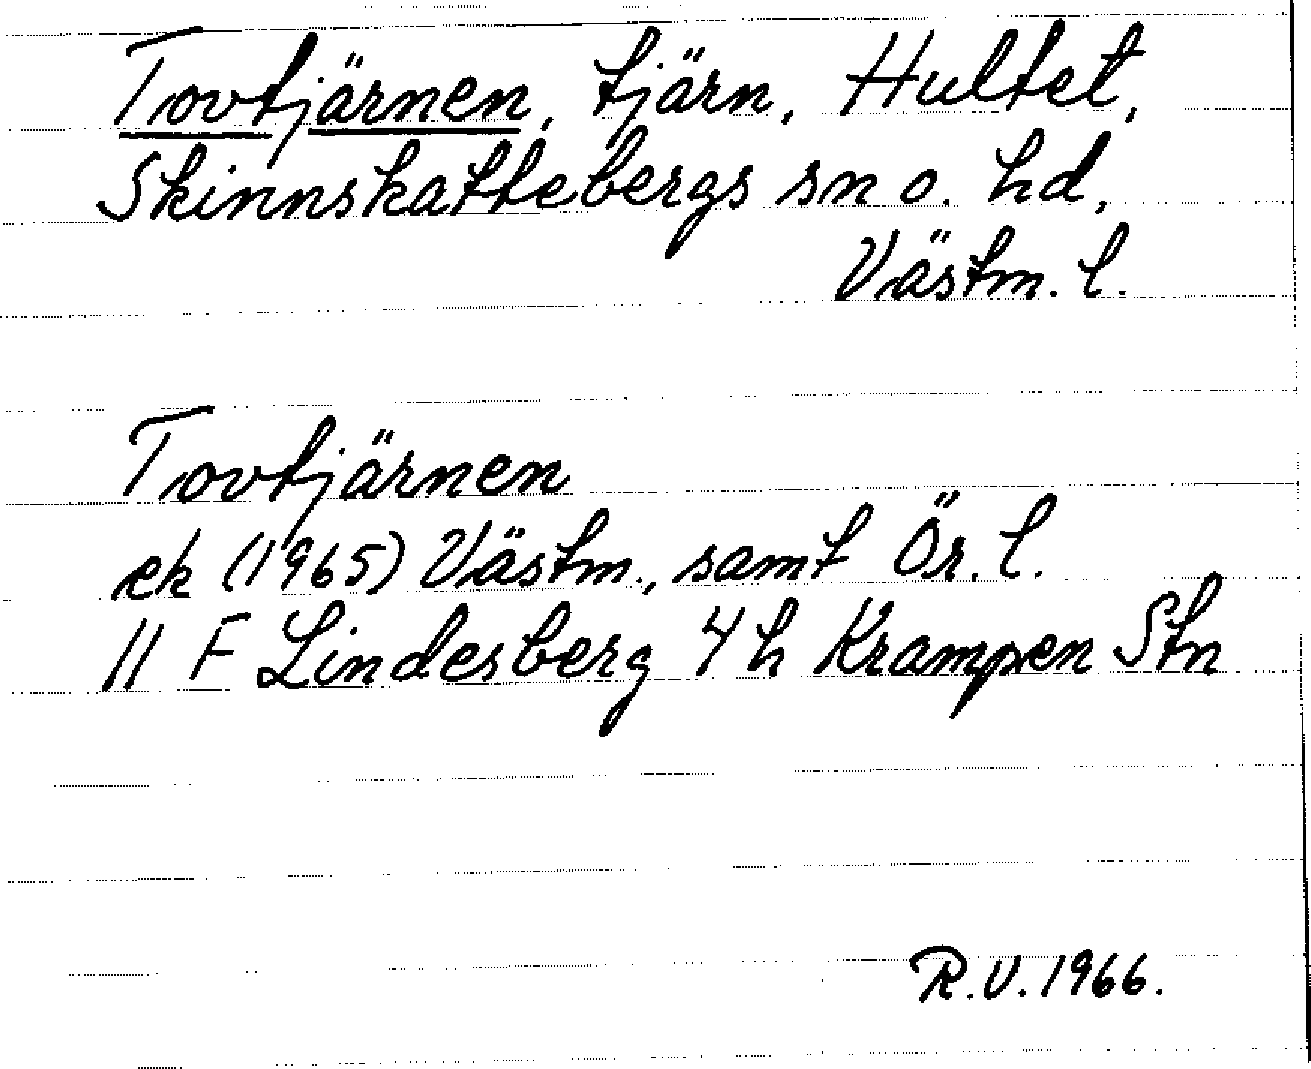 Tovtjärnen, tjärn, Hultet,
Skinnskattebergs sn o. hd,
Västm. l.
Tovtjärnen
ek (1965) Västm., samt Ör. l.
11 F Lindesberg 4 h Krampen Stn
R.V. 1966.